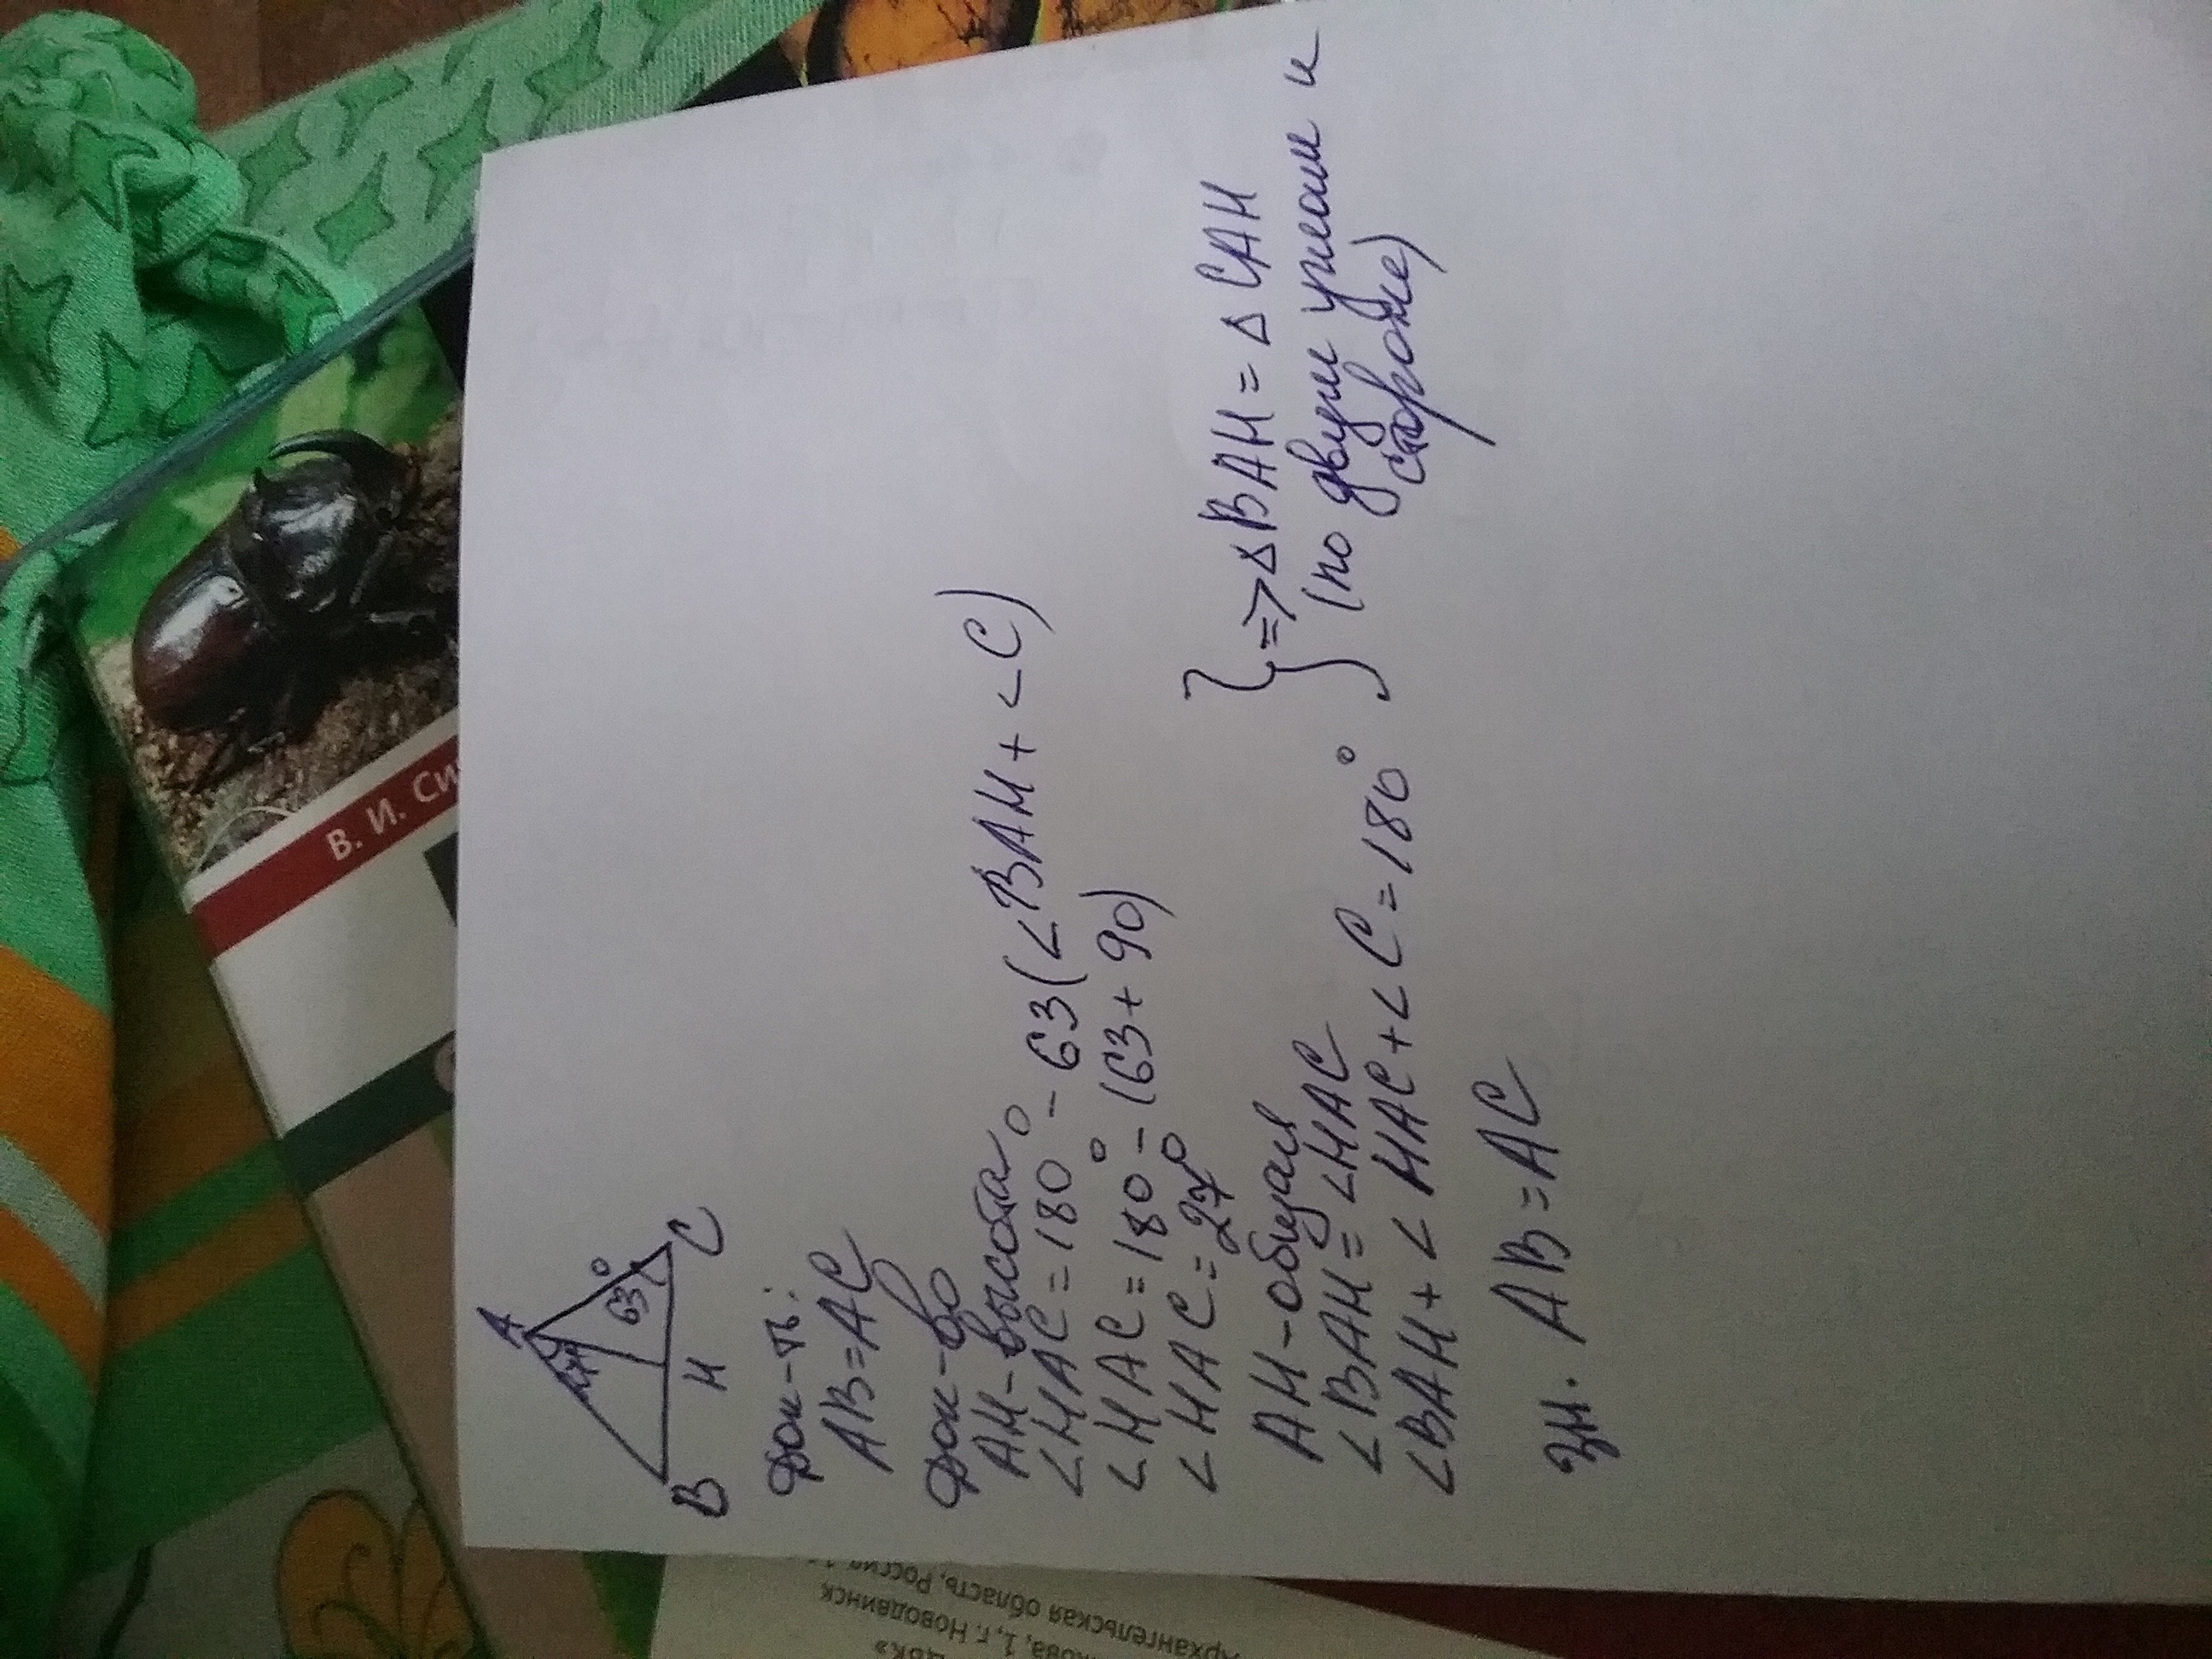 A
63°
27°
B
H
C
Док-ть:
AB=AC
Док-во
AH-высота
∠HAC=180°-63(∠BAH+∠C)
∠HAC=180°-(63+90)
∠HAC=27°
AH-общая
∠BAH=∠HAC
∠BAH+∠HAC+∠C=180°
}=>△BAH=△CAH
(по двум углам и
стороне)
Зн. AB=AC
В. И. Си
Архангельская область, Россия
кова, 1, г. Новодвинск
ЦБК»